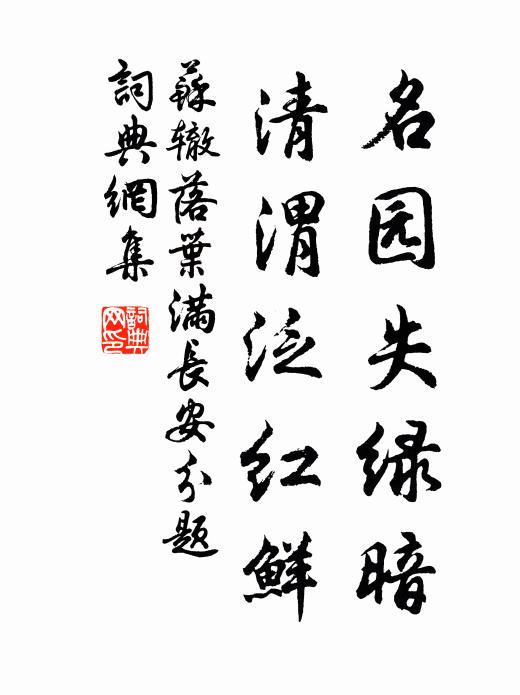 名园失绿暗
清渭泛红鲜
蘇辙落葉滿長安分题
詞典網集
詞典网印